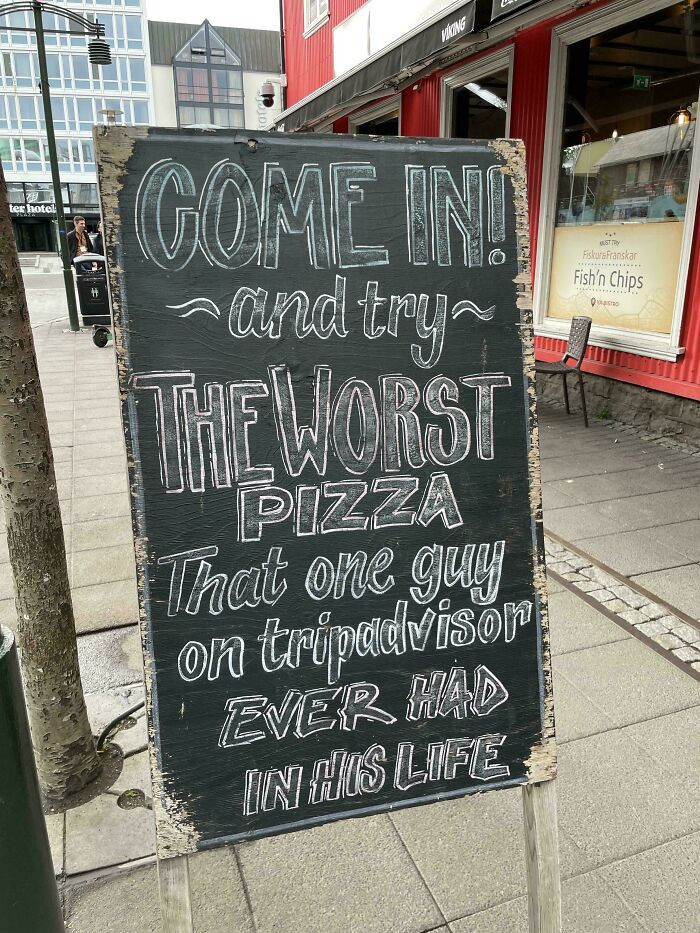 COME IN!
~and try~
THE WORST
PIZZA
That one guy
on tripadvisor
EVER HAD
IN HIS LIFE
VÍKING
MUST TRY
Fiskur&Franskar
Fish'n Chips
ter hotel
PLAZA